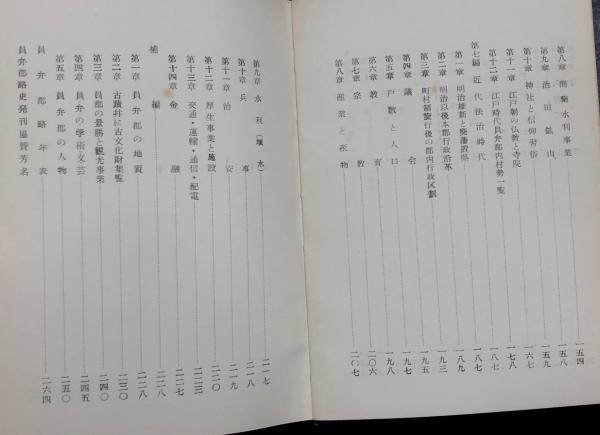 第八章 開墾水利事業 一五四
第九章 治田鉱山 一五八
第十章 神社と信仰習俗 一五九
第十一章 江戸朝の仏教と寺院 一六七
第十二章 江戸時代員弁郡内村勢一覧 一七八
第七編 近代法治時代 一八七
第一章 明治維新と廃藩置県 一八七
第二章 明治以後本郡行政沿革 一八九
第三章 町村制施行後の郡内行政区劃 一九三
第四章 議会 一九五
第五章 戸数と人口 一九七
第六章 教育 一九八
第七章 宗教 二〇六
第八章 産業と産物 二〇七
第九章 水利(壊水) 二一七
第十章 兵事 二一八
第十一章 治安 二一九
第十二章 厚生事業と施設 二二〇
第十三章 交通・運輸・通信・配電 二二三
第十四章 金融 二二七
補編 二二八
第一章 員弁郡の地質 二二八
第二章 古蹟并に古文化財集覧 二三〇
第三章 員郡の景勝と観光事業 二四〇
第四章 員弁の学術文芸 二四五
第五章 員弁郡の人物 二五〇
員弁郡略年表 二六四
員弁郡略史発刊協賛芳名